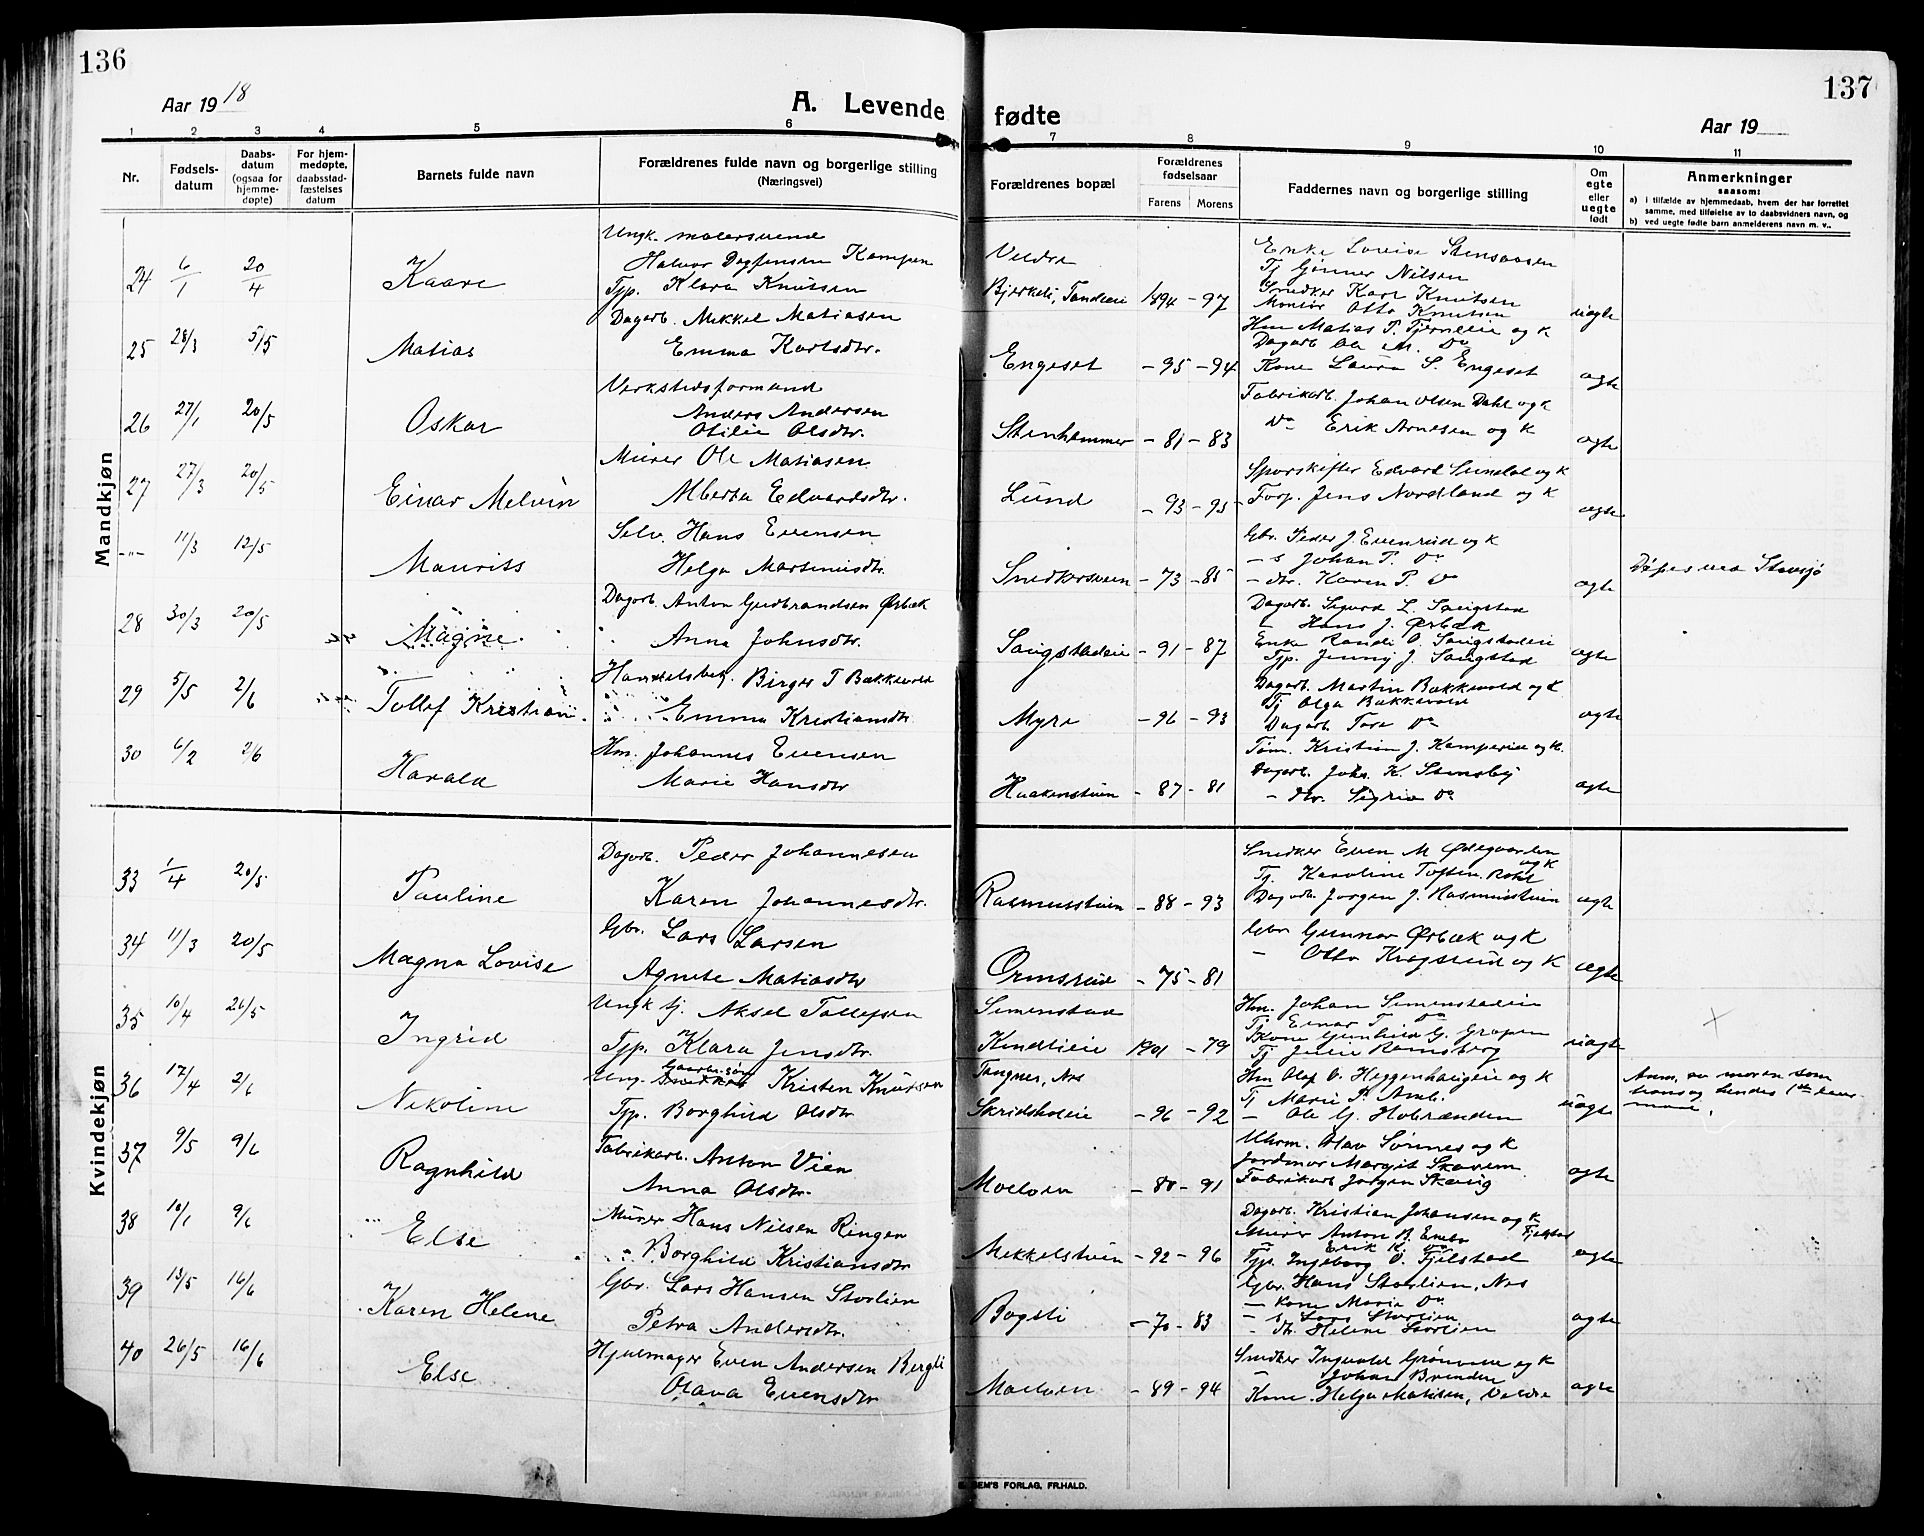 136
137
Aar 1918
A. Levende fødte
Aar 19
1 2 3 4 5 6 7 8 9 10 11
Nr.
Fødsels-
datum
Daabs-
datum
(ogsaa for
hjemme-
døpte)
For hjem-
medøpte,
daabsstad-
fæstelses
datum
Barnets fulde navn
Forældrenes fulde navn og borgerlige stilling
(Næringsvei)
Forældrenes bopæl
Forældrenes
fødselsaar
Farens Morens
Faddernes navn og borgerlige stilling
Om
egte
eller
uegte
født
Anmerkninger
saasom:
a) i tilfælde av hjemmedaab, hvem der har forrettet
samme, med tilføielse av to daabsvidners navn, og
b) ved uegte fødte barn anmelderens navn m. v..
Mandkjøn
24 6/1 20/4 Kaare
Ungk. malersvend
Halvor Dagfinsen Kampen
Tjp. Klara Knutsen
Veldre
Bjerkeli, Tandeie 1894 - 97
Enke Lovise Stensaasen
Tj Gunner Nilsen
Snedker Karl Knutsen
Montør Otto Knutsen
uegte
25 28/3 5/5 Matias
Dagarb. Mekkel Matiasen
Emma Karlsdtr.
Engeset - 95 - 94
Hm Matias P. Tjerneie og K
Dagarb Ole M. Do
Kone Laura S. Engeset
egte
26 27/1 20/5 Oskar
Verkstedsformand
Anders Andersen
Otilie Olsdtr.
Stenhammer - 81 - 83
Fabrikarb. Johan Olsen Dahl og K
Do Erik Arnesen og K
egte
27 27/3 20/5 Einar Melvin
Murer Ole Matiasen
Alberta Edvardsdtr.
Lund - 93 - 95
Sporskifter Edvard Sundal og K
Forp. Jens Nordland og K
egte
-"- 11/3 12/5 Maurits
Selv. Hans Evensen
Helga Martinusdtr.
Snedkersveen - 73 - 85
Gbr. Peder J. Evenrud og K
- s Johan P. Do
- dtr. Karen P. Do
egte
Døpt i Stavsjø
28 30/3 20/5 Magne
Dagarb. Anton Gudbrandsen Ørbæk
Anna Johnsdtr.
Saugstadeie - 91 - 87
Dagarb. Sigurd L. Saugstad
- Hans J. Ørbæk
Enke Randi O. Saugstadeie
Tjp. Jenny J. Saugstad
egte
29 5/5 2/6 Tollef Kristian
Handelsbetj. Birger T Bækkevold
Emma Kristiansdtr.
Myre - 96 - 93
Dagarb. Martin Bækkevold og K
Tj Olga Bækkevold
Dagarb. Tore Do
egte
30 6/2 2/6 Harald
Hm. Johannes Evensen
Marie Hansdtr
Haakenstuen - 87 - 81
Tøm. Kristian J. Kamperud og K.
Dagarb. Johs. K. Stensby
- dtr. Sigrid Do
egte
Kvindekjøn
33 1/4 20/5 Pauline
Dagarb. Peder Johannesen
Karen Johannesdtr.
Rasmusstuen - 88 - 93
Snedker Even M Ødegaarden
og K
Tj. Karoline Toften
Dagarb. Jørgen J. Rasmusstuen
egte
34 11/3 20/5 Magna Lovise
Gbr. Lars Larsen
Agnete Matiasdtr
Ormsrud - 75 - 81
Gbr Gunnar Ørbæk og K
- Otto Kragsrud og K
egte
35 10/4 26/5 Ingrid
Ungk tj. Aksel Tollefsen
Tjp. Klara Jensdtr.
Simenstad
Kindlieie 1901 - 79
Hm. Johan Simenstadeie
Tj Einar T. Do
Kone Gunhild G. Grapen
Tj Julie Ramsberg
uegte
36 17/4 2/6 Nikoline
Ung. Gaardbr.søn Kristen Knutsen
Tjp. Borghild Olsdtr
Tangnes, Nes
Skridsholeie - 96 - 92
Hm Olaf O. Heggenhaugeie og K
Tj Marie P. Amb.
- Ole G. Hobrænden
uegte
Anm. av moren som
37 9/5 9/6 Ragnhild
Fabrikarb. Anton Vien
Anna Olsdtr.
Moelven - 80 - 91
Uhrm. Olav Sønnes og K
Jordmor Margit Skavern
Fabrikarb Jørgen Skavig
egte
38 10/1 9/6 Else
Murer Hans Nilsen Ringen
Borghild Kristiansdtr
Mekkelstuen - 92 - 96
Dagarb. Kristian Johansen og K
Murer Anton B. Embo Fjelstad
Erik K. Do
Tjp. Ingeborg O. Fjelstad
egte
39 13/5 16/6 Karen Helene
Gbr. Lars Hansen Storlien
Petra Andersdtr.
Bogsti - 70 - 83
Gbr. Hans Storlien, Nes
- Kone Marie Do
- s. Lars Storlien
- dtr. Helene Storlien
egte
40 26/5 16/6 Else
Hjulmager Even Andersen Bergli
Olava Evensdtr
Moelven - 89 - 94
Snedker Ingvald Grønvold og K
- Johan Brenden
Kone Helga Matisen, Veldre
egte
SEM'S FORLAG, FR.HALD.